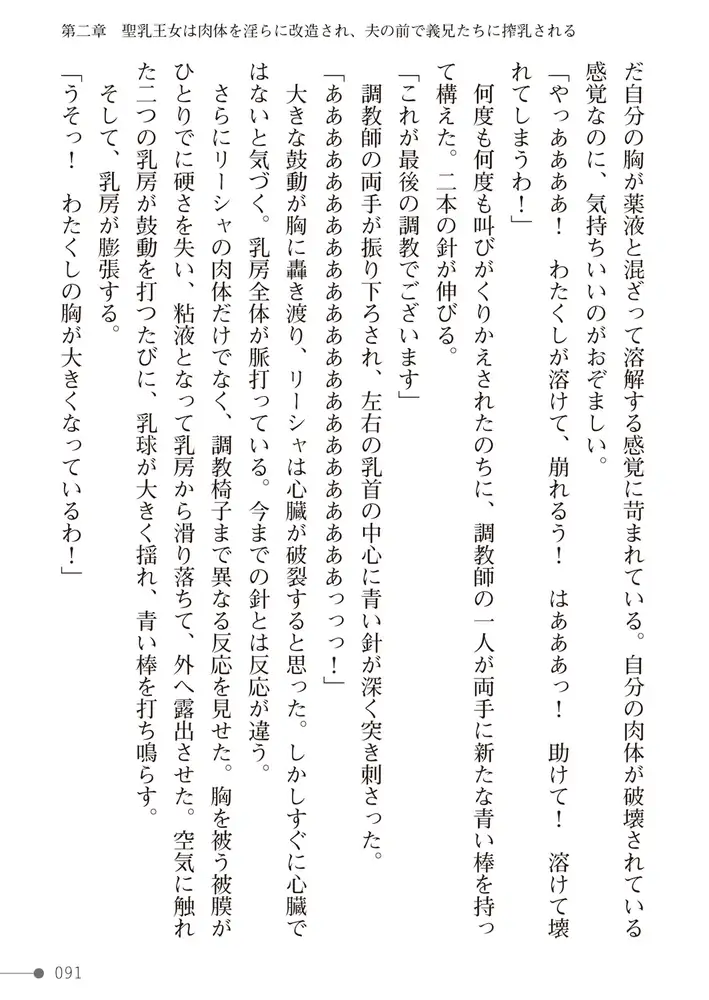 第二章　聖乳王女は肉体を淫らに改造され、夫の前で義兄たちに搾乳される
だ自分の胸が薬液と混ざって溶解する感覚に苛まれている。自分の肉体が破壊されている
感覚なのに、気持ちいいのがおぞましい。
「やっああああ！　わたくしが溶けて、崩れるう！　はあああっ！　助けて！　溶けて壊
れてしまうわ！」
何度も何度も叫びがくりかえされたのちに、調教師の一人が両手に新たな青い棒を持っ
て構えた。二本の針が伸びる。
「これが最後の調教でございます」
調教師の両手が振り下ろされ、左右の乳首の中心に青い針が深く突き刺さった。
「ああああああああああああああああああああああああああっっっ！」
大きな鼓動が胸に轟き渡り、リーシャは心臓が破裂すると思った。しかしすぐに心臓で
はないと気づく。乳房全体が脈打っている。今までの針とは反応が違う。
さらにリーシャの肉体だけでなく、調教椅子まで異なる反応を見せた。胸を被う被膜が
ひとりでに硬さを失い、粘液となって乳房から滑り落ちて、外へ露出させた。空気に触れ
た二つの乳房が鼓動を打つたびに、乳球が大きく揺れ、青い棒を打ち鳴らす。
そして、乳房が膨張する。
「うそっ！　わたくしの胸が大きくなっているわ！」
091